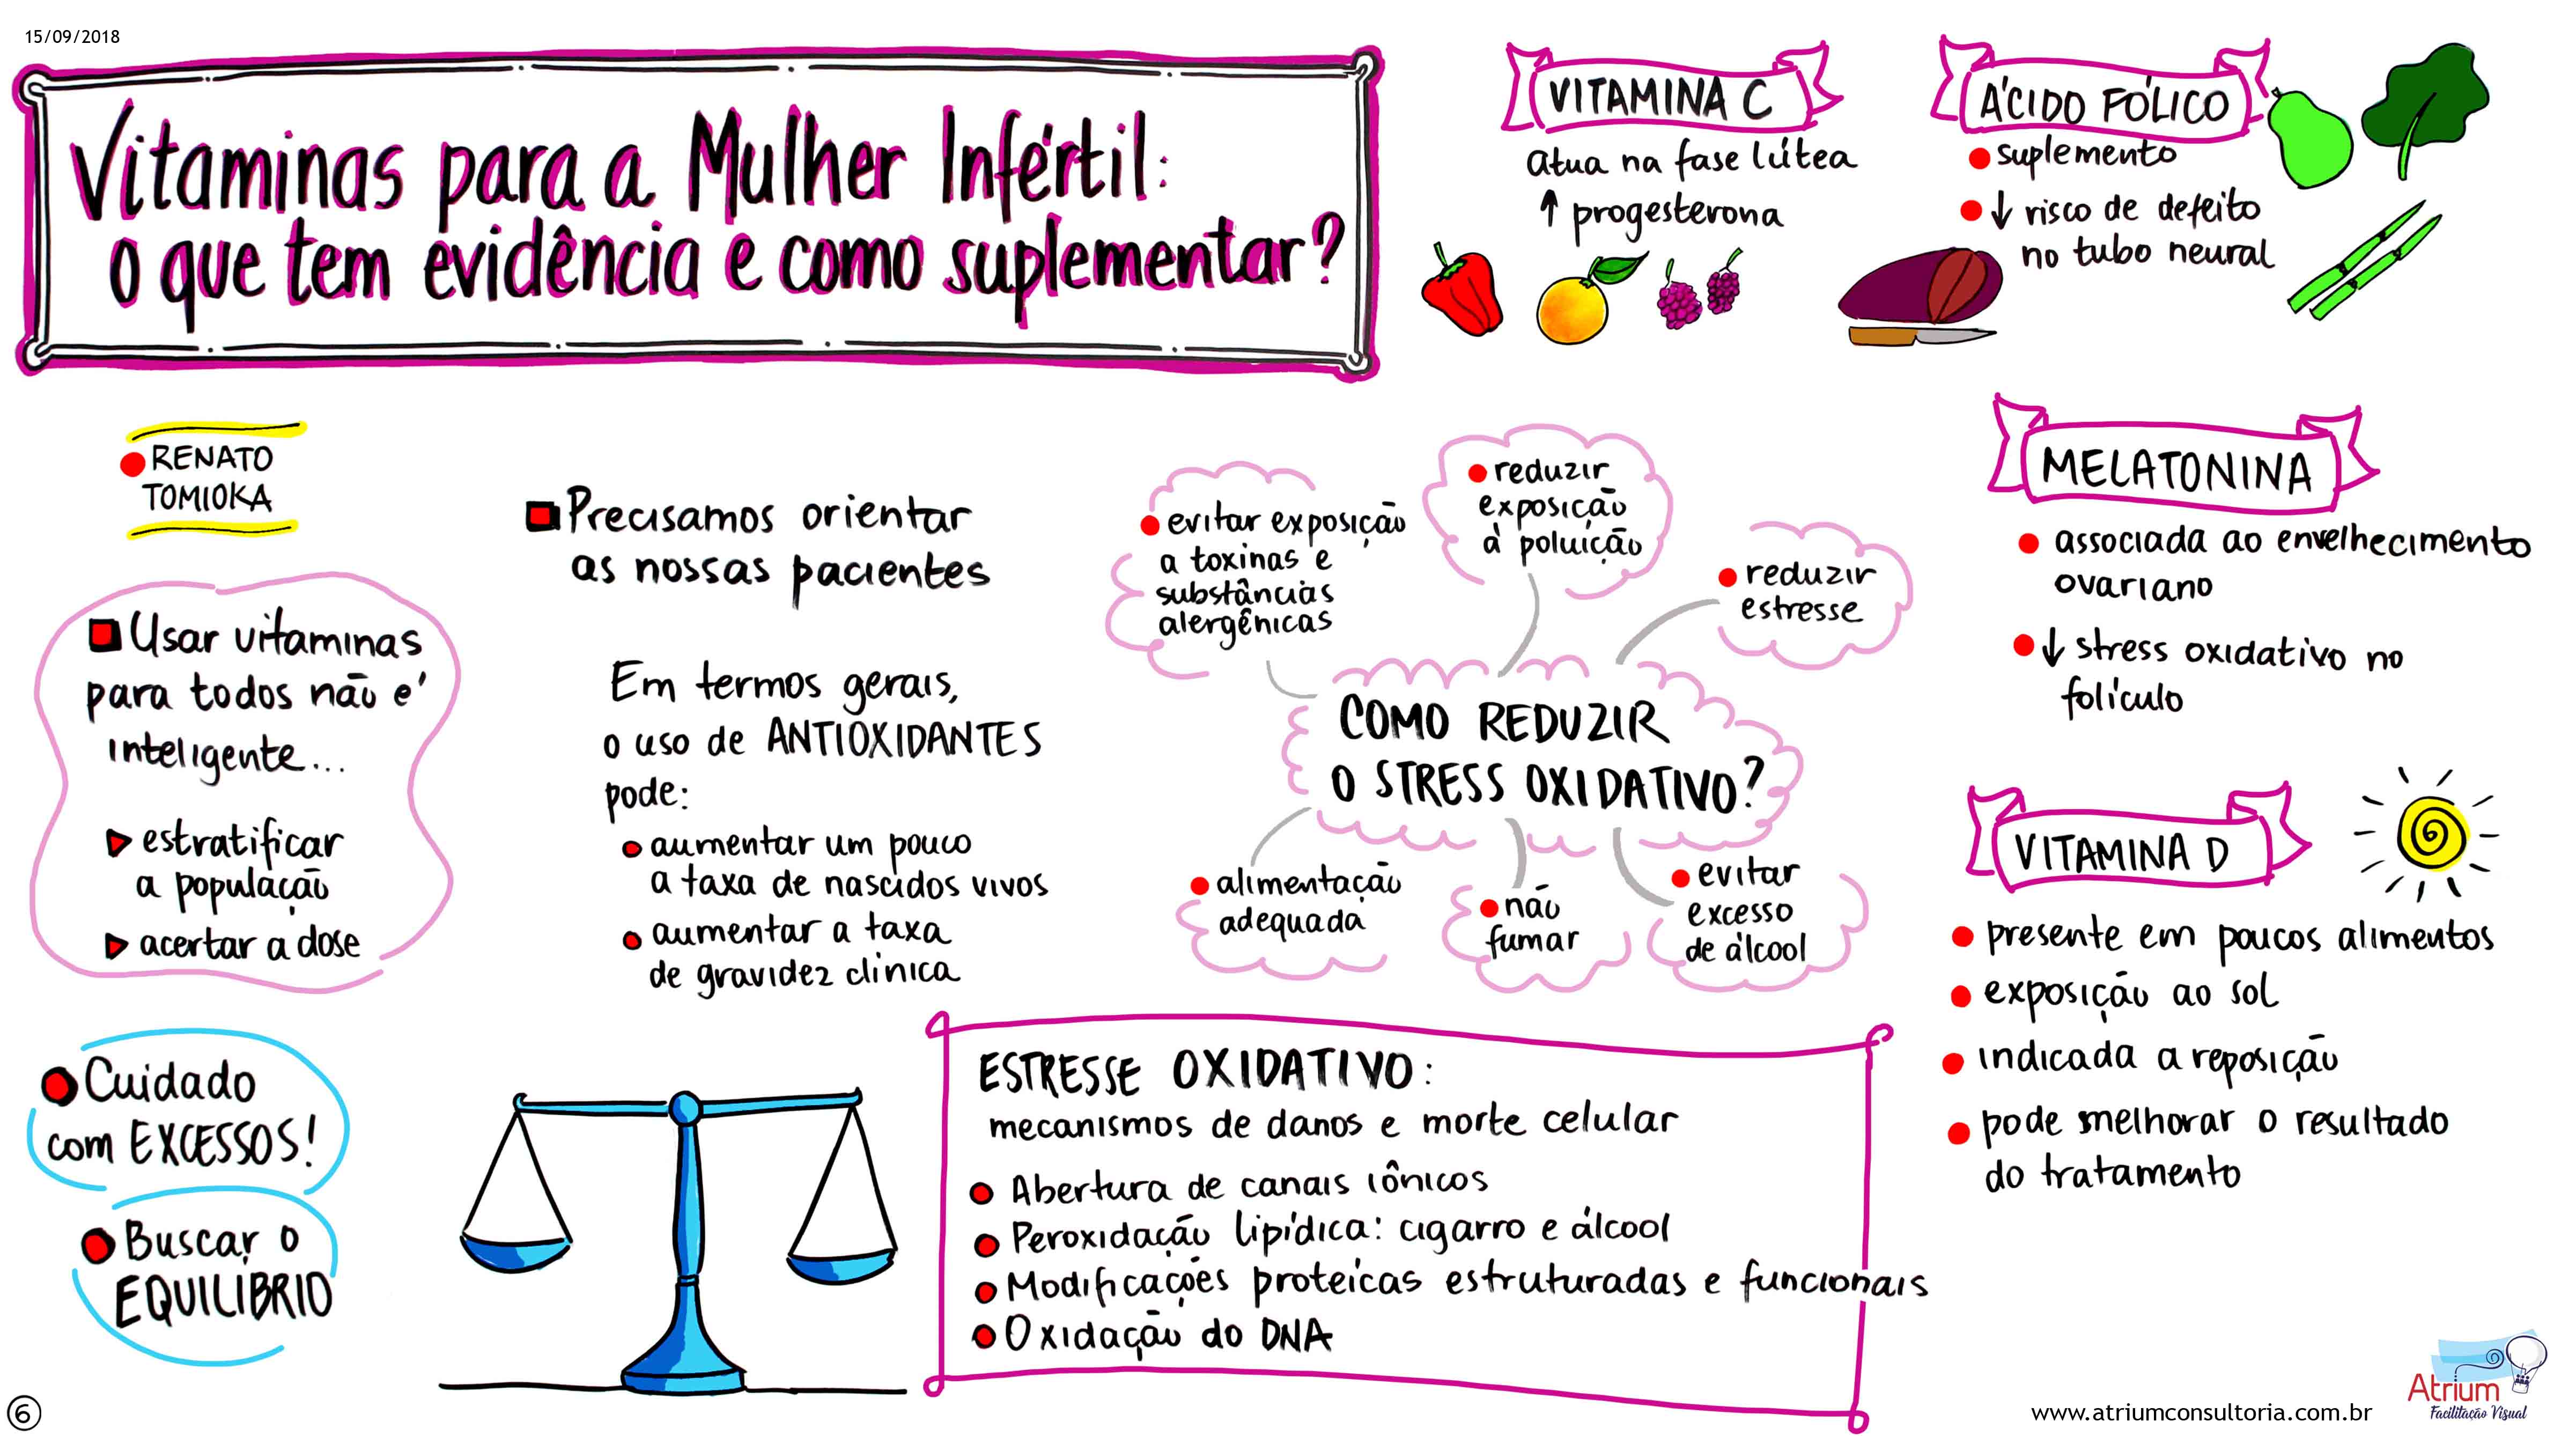 15/09/2018
Vitaminas para a Mulher Infértil:
o que tem evidência e como suplementar?
RENATO
TOMIOKA
Usar vitaminas
para todos não é
inteligente...
estratificar
a população
acertar a dose
Cuidado
com EXCESSOS!
Buscar o
EQUILÍBRIO
Precisamos orientar
as nossas pacientes
Em termos gerais,
o uso de ANTIOXIDANTES
pode:
aumentar um pouco
a taxa de nascidos vivos
aumentar a taxa
de gravidez clínica
COMO REDUZIR
O STRESS OXIDATIVO?
evitar exposição
a toxinas e
substâncias
alergênicas
reduzir
exposição
à poluição
reduzir
estresse
alimentação
adequada
não
fumar
evitar
excesso
de álcool
ESTRESSE OXIDATIVO:
mecanismos de danos e morte celular
Abertura de canais iônicos
Peroxidação lipídica: cigarro e álcool
Modificações proteícas estruturadas e funcionais
Oxidação do DNA
VITAMINA C
atua na fase lútea
↑ progesterona
ÁCIDO FÓLICO
suplemento
↓ risco de defeito
no tubo neural
MELATONINA
associada ao envelhecimento
ovariano
↓ stress oxidativo no
folículo
VITAMINA D
presente em poucos alimentos
exposição ao sol
indicada a reposição
pode melhorar o resultado
do tratamento
6
www.atriumconsultoria.com.br
Atrium
Facilitação Visual